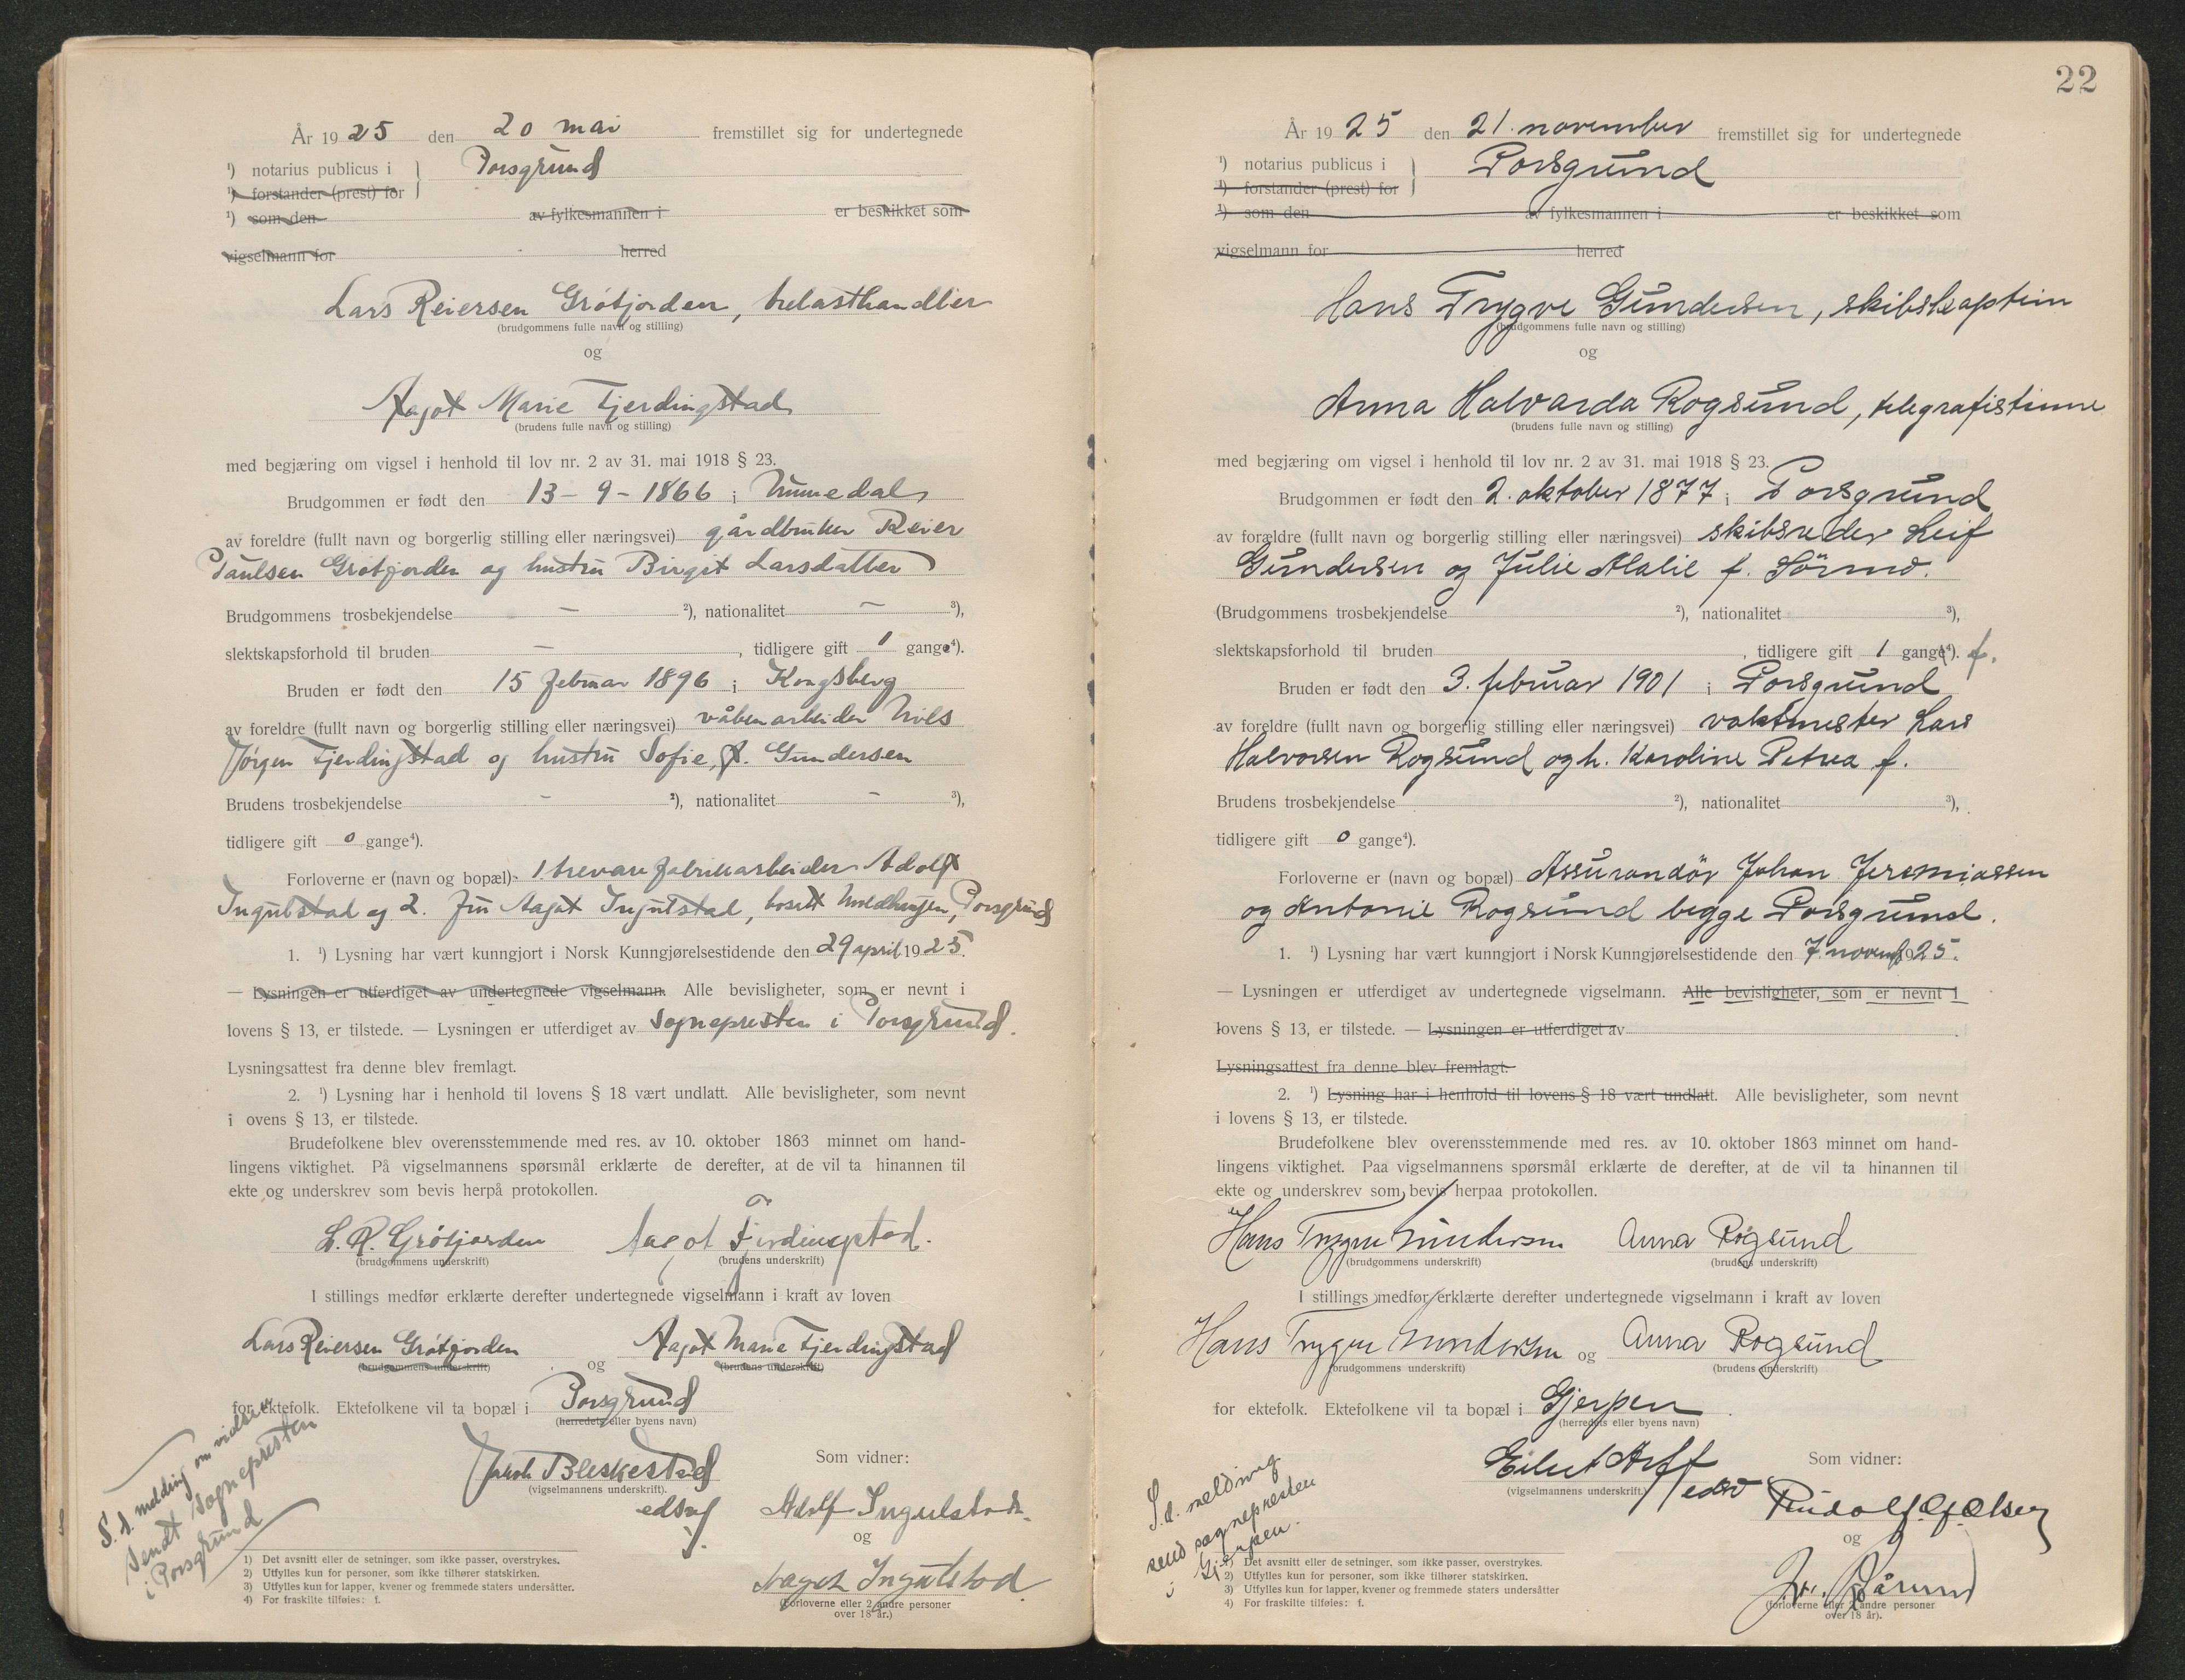 År 1925 den 20 mai fremstillet sig for undertegnede
¹) notarius publicus i } Porsgrund
¹) forstander (prest) for
¹) som den av fylkesmannen i er beskikket som
vigselmann for herred
Lars Reiersen Grötjorden, trelasthandler
(brudgommens fulle navn og stilling)
og
Aagot Marie Fjerdingstad
(brudens fulle navn og stilling)
med begjæring om vigsel i henhold til lov nr. 2 av 31. mai 1918 § 23.
Brudgommen er født den 13-9-1866 i Numedal
av foreldre (fullt navn og borgerlig stilling eller næringsvei) gårdbruker Reier
Paulsen Grötjorden og hustru Birgit Larsdatter
Brudgommens trosbekjendelse — ²), nationalitet — ³),
slektskapsforhold til bruden — , tidligere gift 1 gange⁴).
Bruden er født den 15 februar 1896 i Kongsberg
av foreldre (fullt navn og borgerlig stilling eller næringsvei) våbenarbeider Nils
Jörgen Fjerdingstad og hustru Sofie, f. Gundersen
Brudens trosbekjendelse — ²), nationalitet — ³),
tidligere gift 0 gange⁴).
Forloverne er (navn og bopæl) 1 trevarefabrikarbeider Adolf
Ingulstad og 2. fru Aagot Ingulstad, bosatt Porsgrund
1. ¹) Lysning har vært kunngjort i Norsk Kunngjørelsestidende den 29 april 1925.
— Lysningen er utferdiget av undertegnede vigselmann. Alle bevisligheter, som er nevnt i
lovens § 13, er tilstede. — Lysningen er utferdiget av Sognepresten i Porsgrund.
Lysningsattest fra denne blev fremlagt.
2. ¹) Lysning har i henhold til lovens § 18 vært undlatt. Alle bevisligheter, som nevnt
i ovens § 13, er tilstede.
Brudefolkene blev overensstemmende med res. av 10. oktober 1863 minnet om hand-
lingens viktighet. På vigselmannens spørsmål erklærte de derefter, at de vil ta hinannen til
ekte og underskrev som bevis herpå protokollen.
L. R. Grötjorden Aagot Fjerdingstad.
(brudgommens underskrift) (brudens underskrift)
I stillings medfør erklærte derefter undertegnede vigselmann i kraft av loven
Lars Reiersen Grötjorden og Aagot Marie Fjerdingstad
(brudgommens underskrift) (brudens underskrift)
for ektefolk. Ektefolkene vil ta bopæl i Porsgrund
(herredets eller byens navn)
Jakob Bleskestad
(vigselmannens underskrift).
edsvf
Som vidner:
Adolf Ingulstad.
og
Aagot Ingulstad.
(Forloverne eller 2 andre personer
over 18 år.)
S. d. melding om vielsen
sendt sognepresten
i Porsgrund
1) Det avsnitt eller de setninger, som ikke passer, overstrykes.
2) Utfylles kun for personer, som ikke tilhører statskirken.
3) Utfylles kun for lapper, kvener og fremmede staters undersåtter.
4) For fraskilte tilføies: f.
22
År 1925 den 21. november fremstillet sig for undertegnede
¹) notarius publicus i } Porsgrund
¹) forstander (prest) for
¹) som den av fylkesmannen i er beskikket som
vigselmann for herred
Hans Trygve Gundersen, skibskaptein
(brudgommens fulle navn og stilling)
og
Anna Halvarda Rogsund, telegrafistinne
(brudens fulle navn og stilling)
med begjæring om vigsel i henhold til lov nr. 2 av 31. mai 1918 § 23.
Brudgommen er født den 2. oktober 1877 i Porsgrund
av forældre (fullt navn og borgerlig stilling eller næringsvei) skibsreder Leif
Gundersen og Julie Malie f.
(Brudgommens trosbekjendelse ²), nationalitet ³),
slektskapsforhold til bruden , tidligere gift 1 gange⁴). f.
Bruden er født den 3. februar 1901 i Porsgrund
av foreldre (fullt navn og borgerlig stilling eller næringsvei) vaktmester Lars
Halvorsen Rogsund og h. Karoline Petrea f.
Brudens trosbekjendelse ²), nationalitet ³),
tidligere gift 0 gange⁴).
Forloverne er (navn og bopæl) Assurandör Johan Jeremiassen
og Antonie Rogsund begge Porsgrund.
1. ¹) Lysning har vært kunngjort i Norsk Kunngjørelsestidende den 7. novemb 1925.
— Lysningen er utferdiget av undertegnede vigselmann. Alle bevisligheter, som er nevnt i
lovens § 13, er tilstede. — Lysningen er utferdiget av
Lysningsattest fra denne blev fremlagt.
2. ¹) Lysning har i henhold til lovens § 18 vært undlatt. Alle bevisligheter, som nevnt
i lovens § 13, er tilstede.
Brudefolkene blev overensstemmende med res. av 10. oktober 1863 minnet om hand-
lingens viktighet. Paa vigselmannens spørsmål erklærte de derefter, at de vil ta hinannen til
ekte og underskrev som bevis herpaa protokollen.
Hans Trygve Gundersen Anna Rogsund
(brudgommens underskrift) (brudens underskrift)
I stillings medfør erklærte derefter undertegnede vigselmann i kraft av loven
Hans Trygve Gundersen og Anna Rogsund
(brudgommens underskrift) (brudens underskrift)
for ektefolk. Ektefolkene vil ta bopæl i Gjerpen
(herredets eller byens navn)
Eilert
(vigselmannens underskrift.)
edsv
Som vidner:
Rudolf Olsen
og
(forloverne eller 2 andre personer
over 18 år).
S.d. melding
send sognepresten
i Gjerpen.
1) Det avsnitt eller de setninger, som ikke passer, overstrykes.
2) Utfylles kun for personer, som ikke tilhører statskirken.
3) Utfylles kun for lapper, kvener og fremmede staters undersåtter
4) For fraskilte tilføies: f.